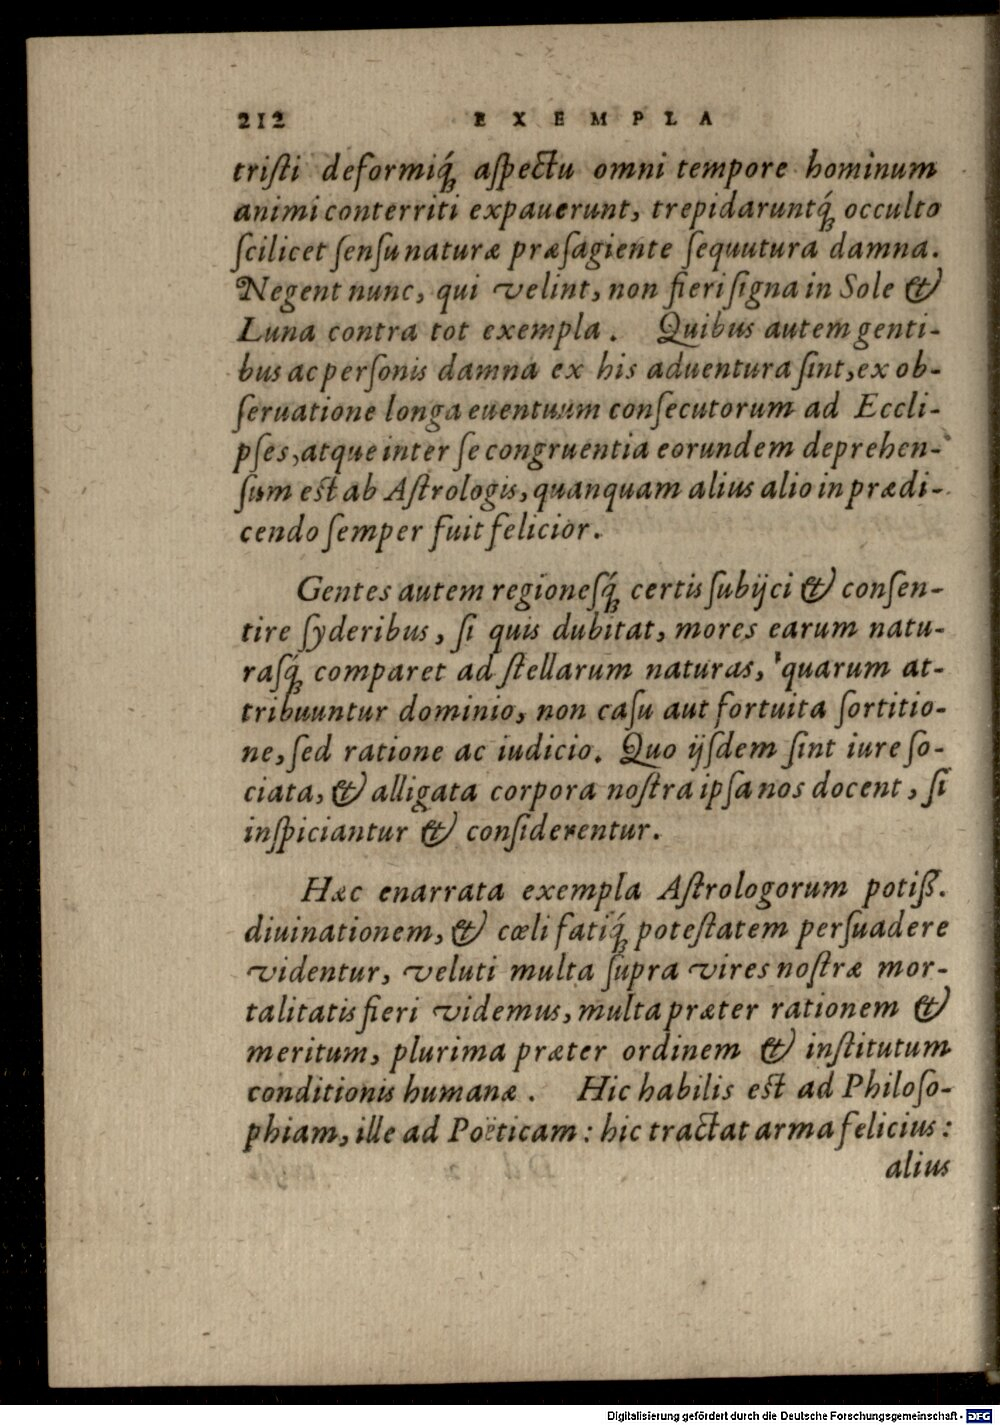 212 EXEMPLA
triſti deformiq́ꝫ aſpectu omni tempore hominum
animi conterriti expauerunt, trepidaruntq́ꝫ occulto
ſcilicet ſenſu naturæ præſagiente ſequutura damna.
Negent nunc, qui velint, non fieri ſigna in Sole &
Luna contra tot exempla. Quibus autem genti-
bus ac perſonis damna ex his aduentura ſint, ex ob-
ſeruatione longa euentuum conſecutorum ad Eccli-
pſes, atque inter ſe congruentia eorundem deprehen-
ſum est ab Aſtrologis, quanquam alius alio in prædi-
cendo ſemper fuit felicior.
Gentes autem regioneſq́ꝫ certis ſubijci & conſen-
tire ſyderibus, ſi quis dubitat, mores earum natu-
raſq́ꝫ comparet ad ſtellarum naturas, quarum at-
tribuuntur dominio, non caſu aut fortuita ſortitio-
ne, ſed ratione ac iudicio. Quo ijſdem ſint iure ſo-
ciata, & alligata corpora noſtra ipſa nos docent, ſi
inſpiciantur & conſiderentur.
Hæc enarrata exempla Aſtrologorum potiß.
diuinationem, & cœli fatiq́ꝫ poteſtatem perſuadere
videntur, veluti multa ſupra vires noſtræ mor-
talitatis fieri videmus, multa præter rationem &
meritum, plurima præter ordinem & inſtitutum
conditionis humanæ. Hic habilis est ad Philoſo-
phiam, ille ad Poëticam: hic tractat arma felicius:
alius
Digitalisierung gefördert durch die Deutsche Forschungsgemeinschaft - DFG